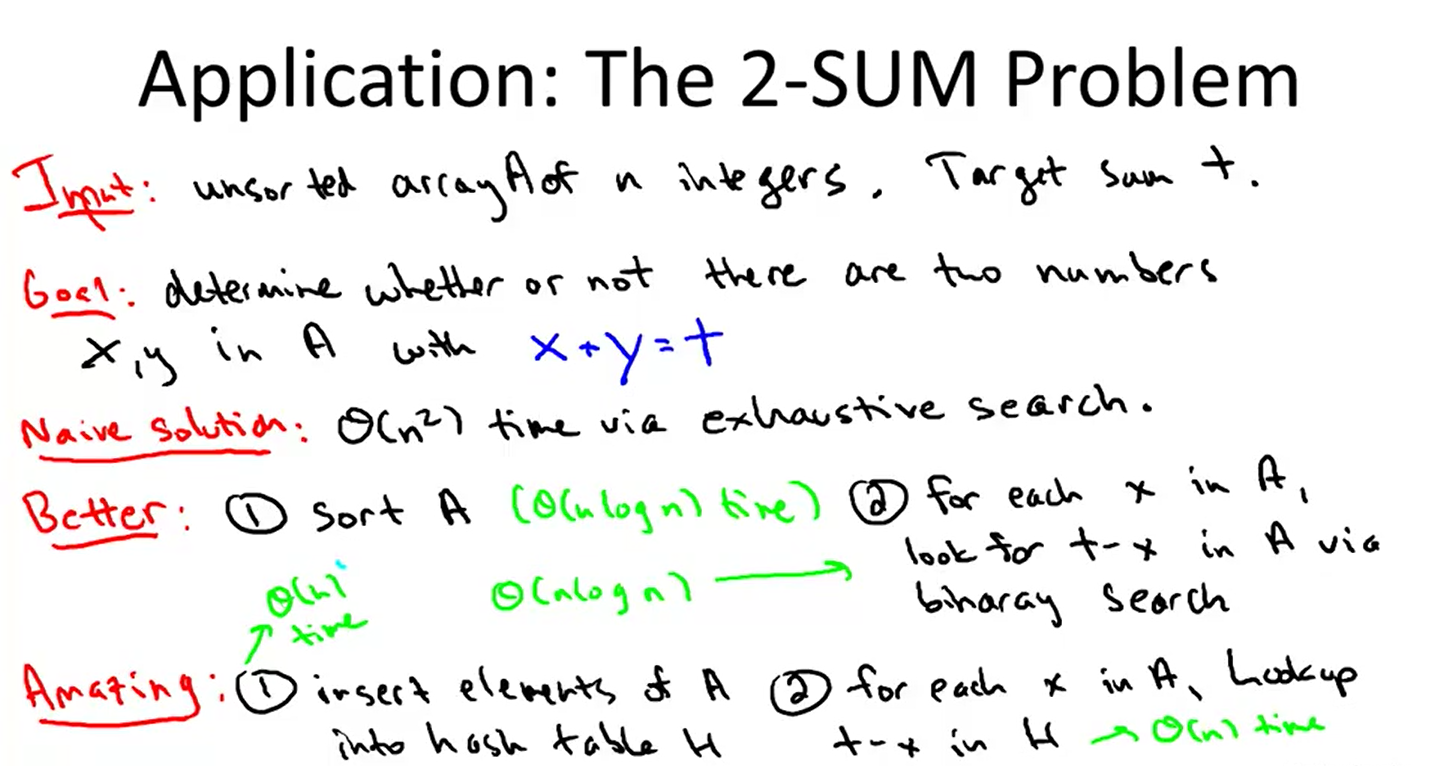 Application: The 2-SUM Problem
Input: unsorted array A of n integers. Target sum t.
Goal: determine whether or not there are two numbers
x,y in A with x+y=t
Naive Solution: θ(n²) time via exhaustive search.
Better: ① sort A (θ(n log n) time) ② for each x in A,
look for t-x in A via
θ(n) time
θ(n log n) →
binaray search
Amazing: ① insert elements of A
into hash table H
② for each x in A, Lookup
t-x in H → θ(n) time